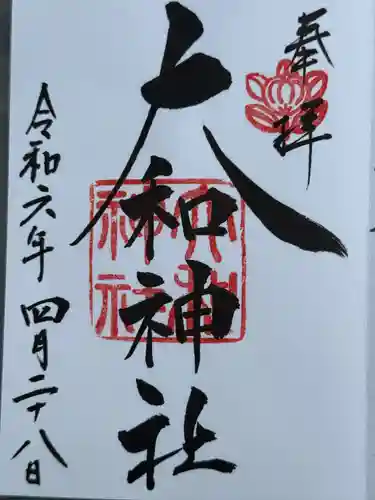 奉拝
大和神社
令和六年四月二十八日